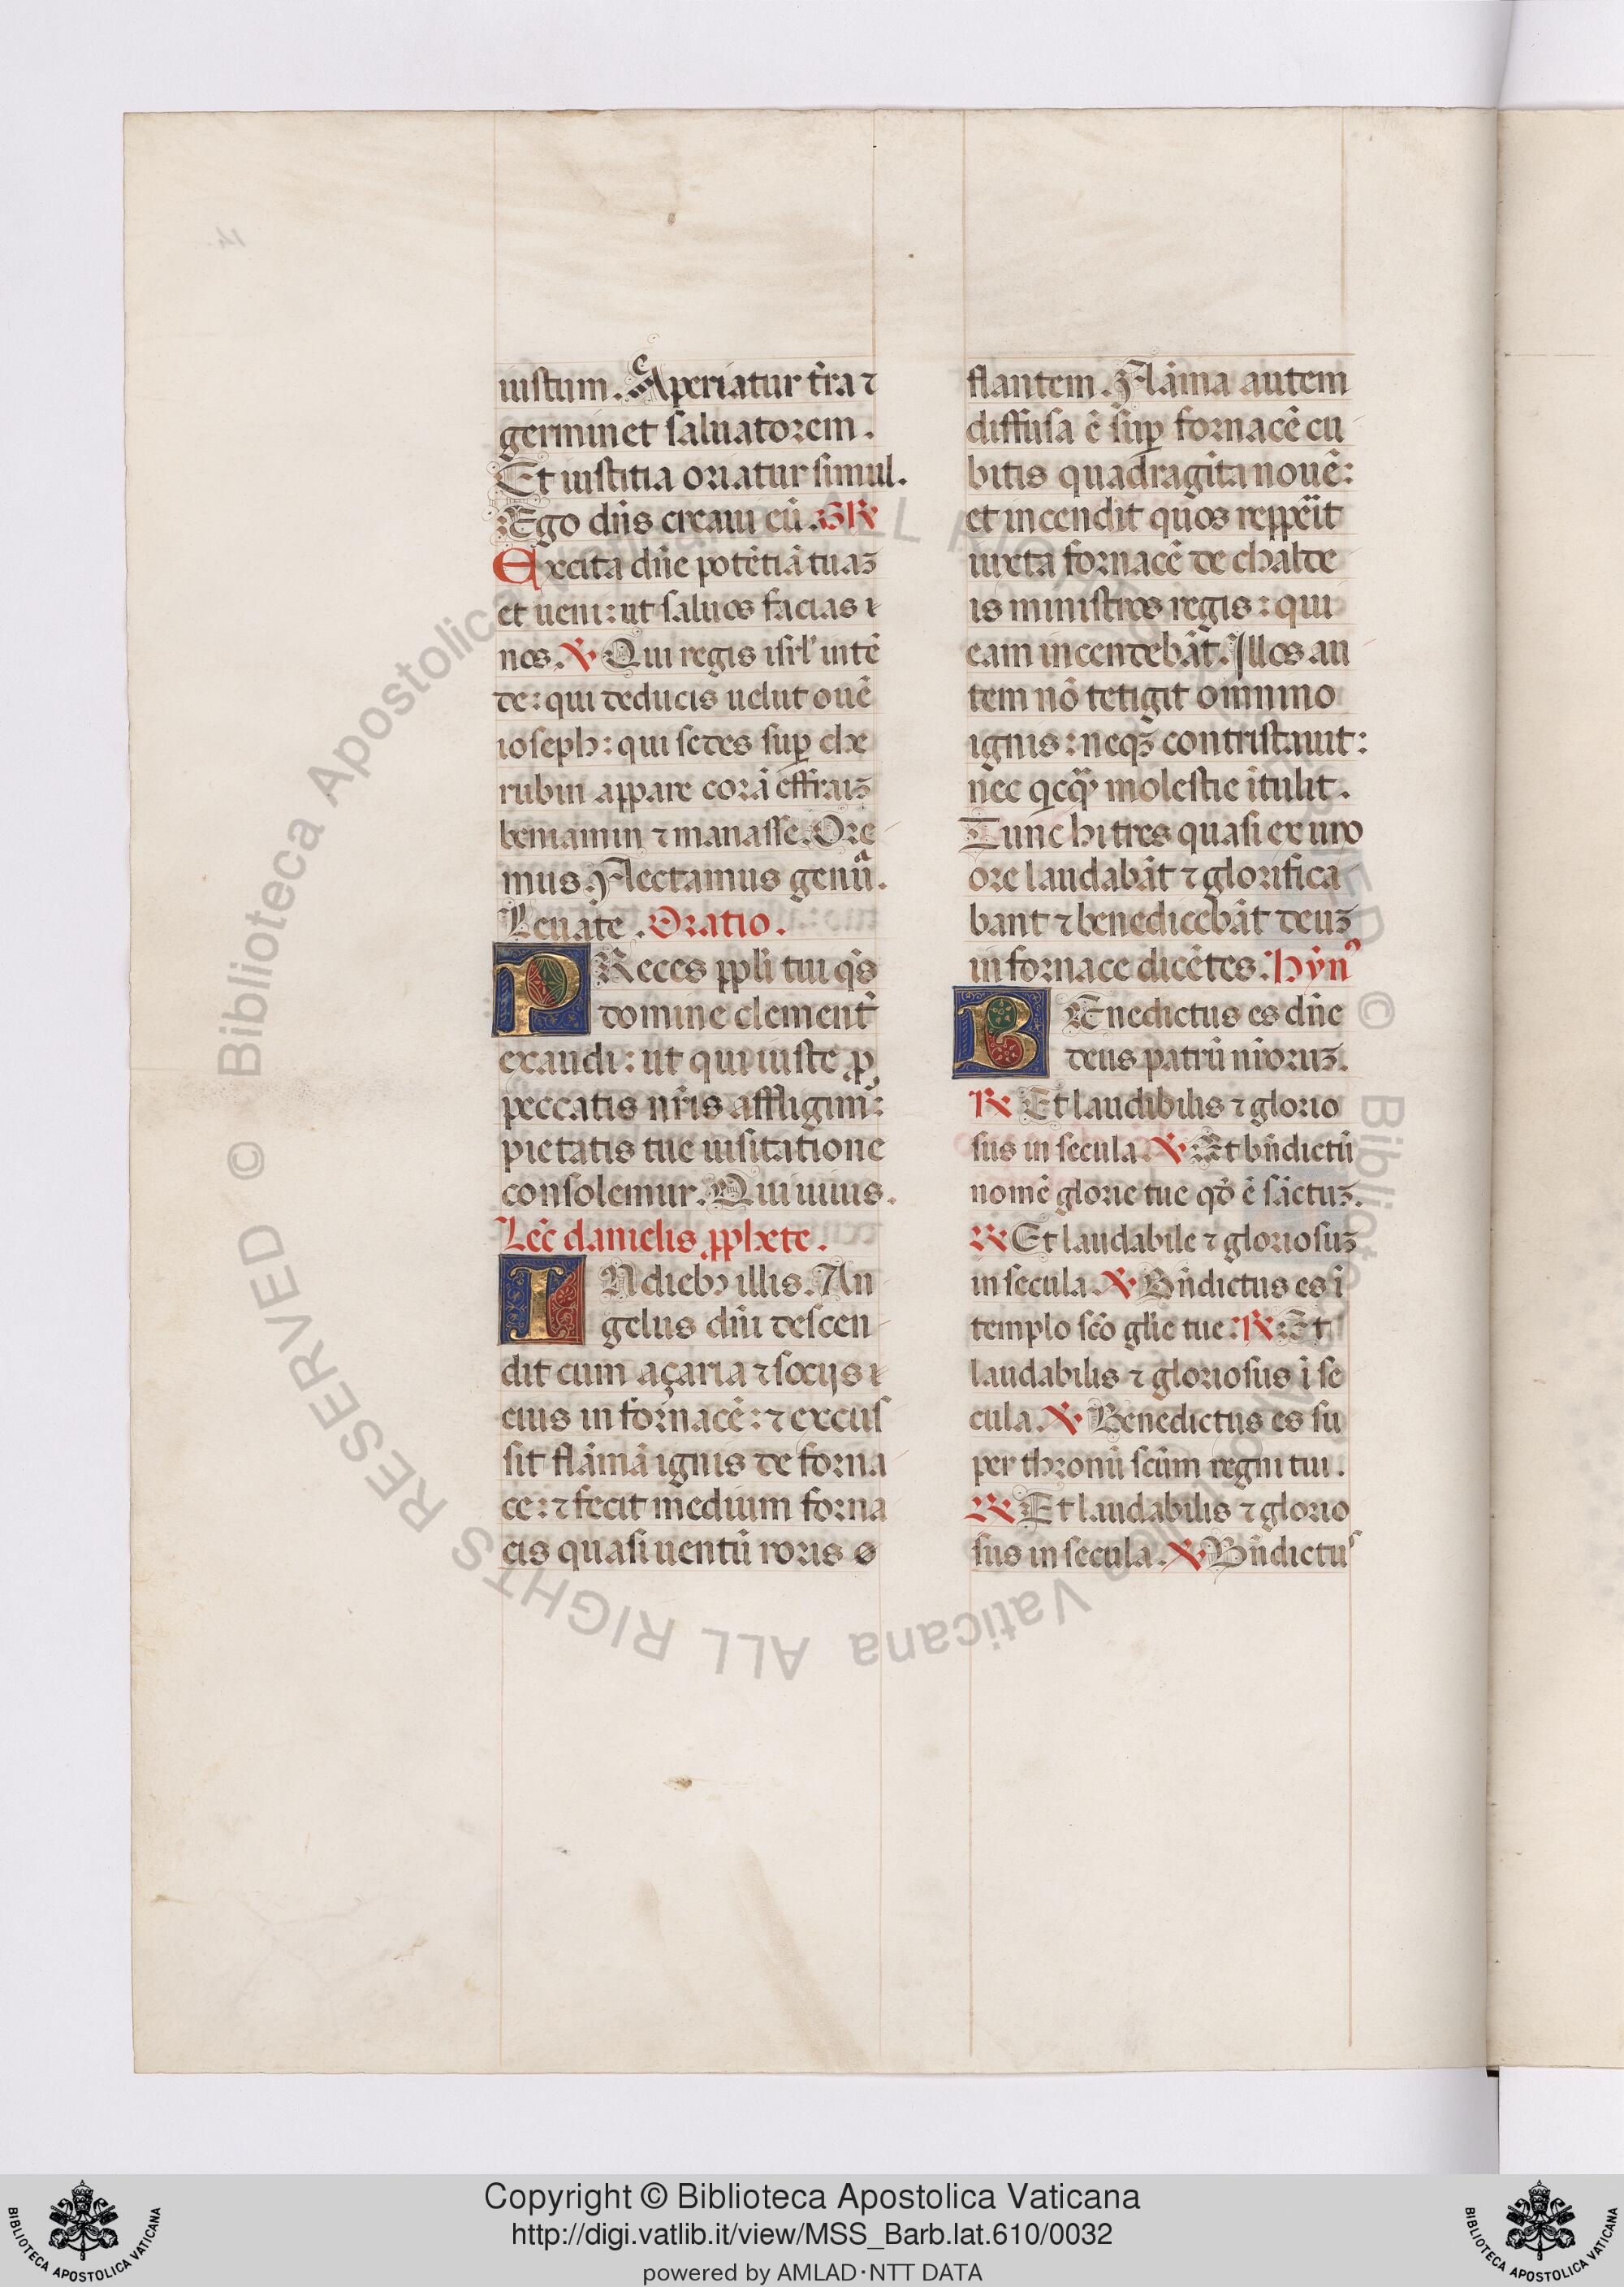 iustum. Aperiatur t̄ra ⁊
germinet saluatorem.
Et iustitia oriatur simul.
Ego dn̄s creaui eū. GR
Excita dn̄e potētiā tuaꝫ
et ueni: ut saluos facias
nos. ℣ Qui regis isrl̄ intē
de: qui deducis uelut ouē
ioseph: qui sedes suꝑ che
rubin appare corā effraiꝫ
beniamin ⁊ manasse. Ore
mus. Flectamus genua.
Leuate. Oratio.
PReces ppl̄i tui q̄s
domine clement̄
exaudi: ut qui iuste ꝓ
peccatis nr̄is affligimꝰ:
pietatis tue uisitatione
consolemur. Qui uiuis.
Lec̄ danielis ꝓphete.
IN diebꝫ illis. An
gelus dn̄i descen
dit cum açaria ⁊ socijs
eius in fornacē: ⁊ excus
sit flāmā ignis de forna
ce: ⁊ fecit medium forna
cis quasi uentū roris
flantem. Flāma autem
diffusa ē suꝑ fornacē cu
bitis quadragīta nouē:
et incendit quos repperit
iuxta fornacē de chalde
is ministros regis: qui
eam incendebāt. Illos au
tem nō tetigit omnino
ignis: neqꝫ contristauit:
nec qicqᷓ molestie ītulit.
Tunc hi tres quasi ex uno
ore laudabāt ⁊ glorifica
bant ⁊ benedicebāt deuꝫ
in fornace dicētes. Hȳnꝰ
BEnedictus es dn̄e
deus patrū nr̄oruꝫ.
℟ Et laudibilis ⁊ glorio
sus in secula. ℣ Et bn̄dictū
nomē glorie tue qđ ē sāctuꝫ.
℟ Et laudabile ⁊ gloriosuꝫ
in secula. ℣ Bn̄dictus es ī
templo scō gl̄ie tue: ℟ Et
laudabilis ⁊ gloriosus ī se
cula. ℣ Benedictus es su
per thronū scūm regni tui.
℟ Et laudabilis ⁊ glorio
sus in secula. ℣ Bn̄dictus
© Biblioteca Apostolica Vaticana ALL RIGHTS RESERVED
Copyright © Biblioteca Apostolica Vaticana
http://digi.vatlib.it/view/MSS_Barb.lat.610/0032
powered by AMLAD·NTT DATA
BIBLIOTECA APOSTOLICA VATICANA
BIBLIOTECA APOSTOLICA VATICANA